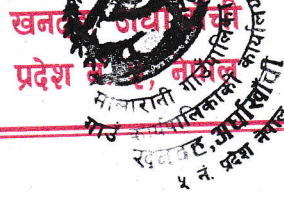 खनदह, अर्घाखाँची
प्रदेश नं. ५, नेपाल
मालारानी गाउँपालिका
गाउँ कार्यपालिकाको कार्यालय
खनदह, अर्घाखाँची
५ नं. प्रदेश नेपाल